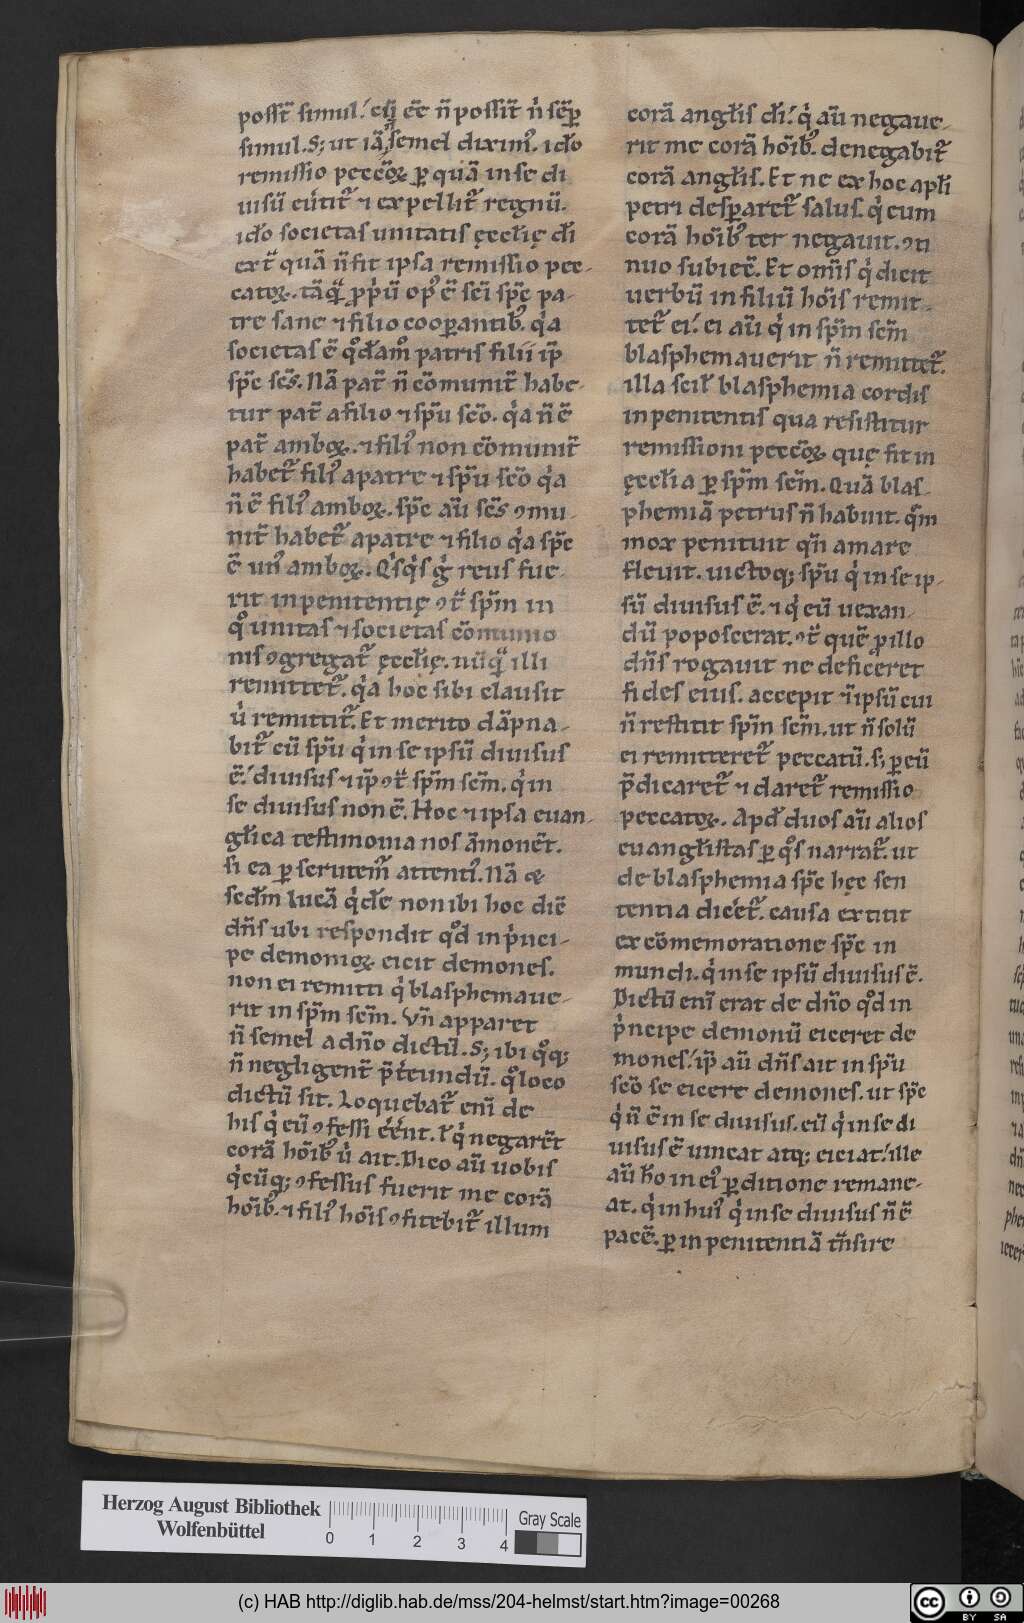 posst̄ simul. cū eē n̄ possit̄ n̊ sēp
simul. S; ut iā semel dixim᾽. ido
remissio peccōꝝ ꝑ quā in se di
uisū eu̇tit᷑ ⁊ expellit᷑ regnū.
ido societas unitatis ęccl̄ię di
ext̄ quā n̄ fit ipsa remissio pec-
catoꝝ. tāq̄ p̱p̊ū op᾽ ē sci sp̄c pa-
tre sane ⁊ filio coopantib᾽. q̊a
societas ē q̊dam̊ patris filii ip̄
sp̄c scs̄. Nā pat̄ n̄ cōmunit̄ habe-
tur pat̄ a filio ⁊ sp̄u scō. q̊a n̄ ē
pat̄ amboꝝ. ⁊ fili᾽ non cōmunit̄
habet᷑ fili᾽ a patre ⁊ sp̄u scō q̊a
n̄ ē fili᾽ amboꝝ. sp̄c aū scs̄ ꝯmu-
nit̄ habet᷑ a patre ⁊ filio q̊a sp̄c
ē un᾽ amboꝝ. Q̊sq̊s g̊ reus fue-
rit inpenitentię ꝯt̄ sp̄m in
q̊ unitas ⁊ societas cōmunio
nis ꝯgregat᷑ ęccl̄ię. nūq̄ illi
remittet᷑. q̊a hoc sibi clausit
u̇ remittit᷑. Et merito dāpna-
bit᷑ cū sp̄u q̊ in se ipsū diuisus
ē. diuisus ⁊ ip̄ ꝯt̄ sp̄m scm̄. q̊ in
se diuisus non ē. Hoc ⁊ ipsa euan-
gl̄ica testimonia nos āmonēt.
si ea ꝑscrutem᷑ attenti᾽. Nā ⁊
scdm̄ lucā q̊de non ibi hoc diē
dn̄s ubi respondit q̊d in p̊nci-
pe demonioꝝ eicit demones.
non ei remitti q̊ blasphemaue-
rit in sp̄m scm̄. Vn̄ apparet
n̄ semel a dn̄o dictū. S; ibi q̊q;
n̄ negligent̄ p̄t̊eundū. q̊ loco
dictū sit. Loquebat᷑ eni̅ de
his q̊ eū ꝯfessi eēnt. ł q̊ negarēt
corā hōib᾽ u̇ ait. Dico aū uobis
q̊cūq; ꝯfessus fuerit me corā
hōib᾽. ⁊ fili᾽ hōis ꝯfitebit᷑ illum
corā angl̄is di. q̊ aū negaue-
rit me corā hōib᾽. denegabit᷑
corā angl̄is. Et ne ex hoc apl̄i
petri desparet᷑ salus. q̊ eum
corā hōib᾽ ter negauit. ꝯti
nuo subiec̄. Et omīs q̊ dicit
uerbū in filiū hōis remit-
tet᷑ ei. ei aū q̊ in sp̄m scm̄
blasphemauerit n̄ remittet᷑.
illa scił blasphemia cordis
inpenitentis qua resistitur
remissioni peccōꝝ quę fit in
ęccl̄ia ꝑ sp̄m scm̄. Quā blas-
phemiā petrus n̄ habuit. q̊m
mox penituit qn̄ amare
fleuit. uictoq; sp̄u q̊ in se ip-
sū diuisus ē. ⁊ q̊ eū uexan-
dū poposcerat. ꝯt̄ quē p̱ illo
dn̄s rogauit ne deficeret
fides eius. accepit ⁊ ipsū cui
n̄ restitit sp̄m scm̄. ut n̄ solū
ei remitteret᷑ peccatū. s; ꝑ eū
p̄dicaret᷑ ⁊ daret᷑ remissio
peccatoꝝ. Apd duos aū alios
euangl̄istas ꝑ q̊s narrat᷑. ut
de blasphemia sp̄c hęc sen
tentia dicet᷑. causa extitit
ex cōmemoratione sp̄c in
mundi. q̊ in se ipsū diuisus ē.
Dictū eni̅ erat de dn̄o q̊d in
p̊ncipe demonū eiceret de
mones. ip̄ aū dn̄s ait in sp̄u
scō se eicere demones. ut sp̄c
q̊ n̄ ē in se diuisus. eū q̊ in se di
uisus ē uincat atq; eiciat. ille
aū ho in ei᾽ ꝑditione remane-
at. q̊ in hui᾽ q̊ in se diuisus n̄ ē
pacē. ꝑ inpenitentiā tn̄sire
Herzog August Bibliothek
Wolfenbüttel
0 1 2 3 4
Gray Scale
(c) HAB http://diglib.hab.de/mss/204-helmst/start.htm?image=00268
cc BY SA